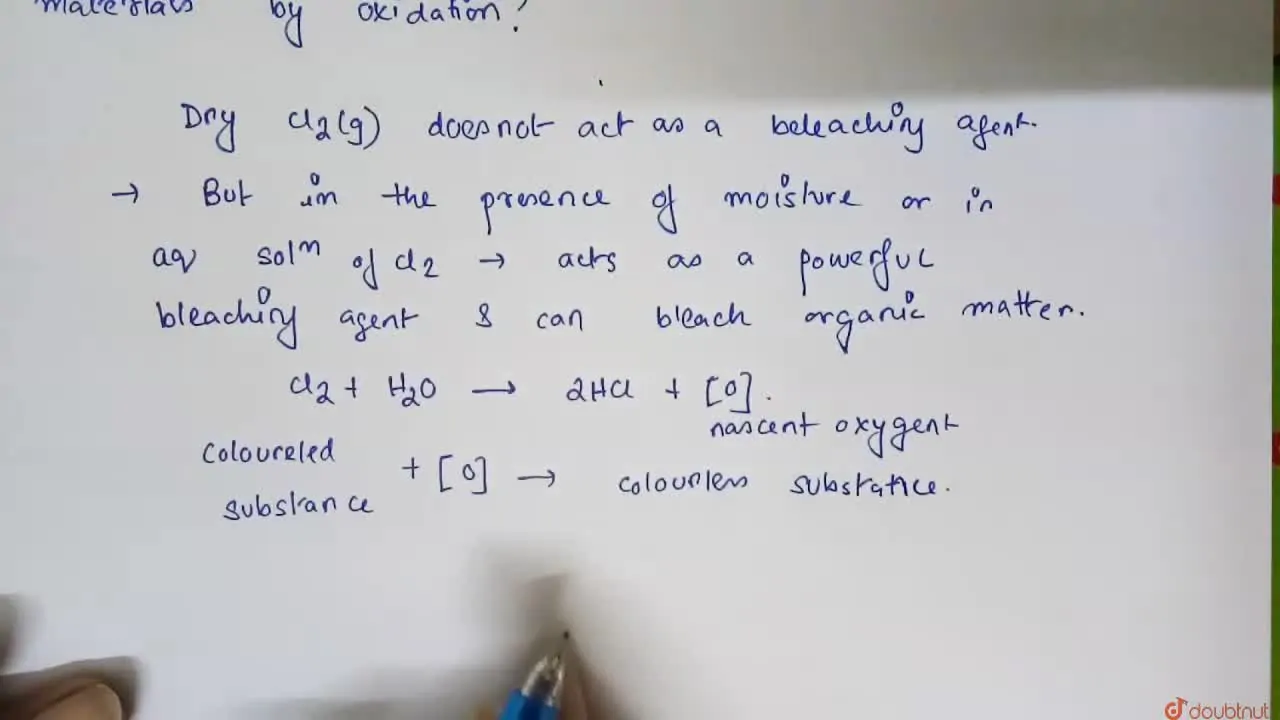 materials by oxidation?
Dry Cl2(g) doesnot act as a beleaching agent.
→ But in the presence of moisture or in
aq solⁿ of Cl2 → acts as a powerful
bleaching agent & can bleach organic matter.
Cl2 + H2O → 2HCl + [O].
nascent oxygent
Coloureled
substance + [O] → colourless substance.
doubtnut